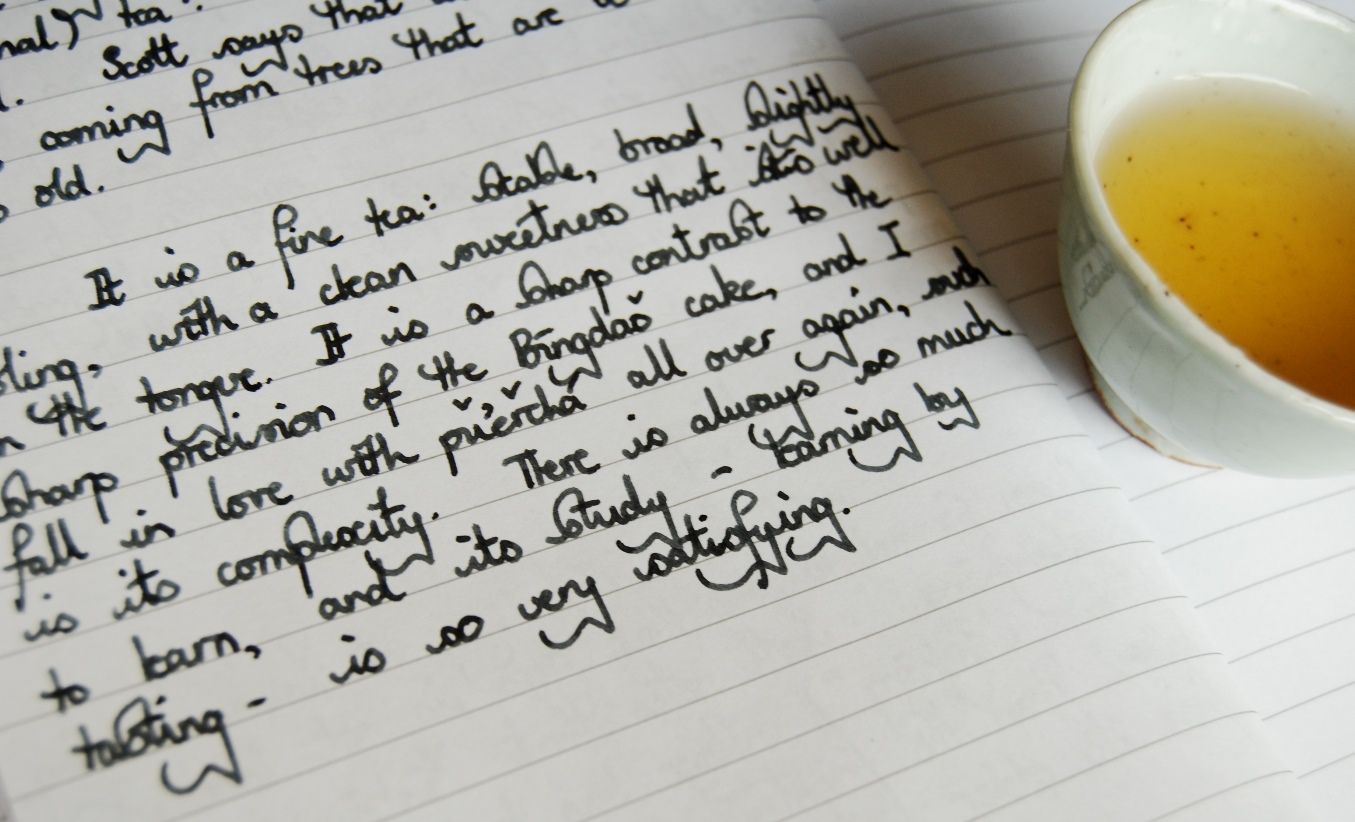 nal) tea.
Scott says that
coming from trees that are
old.
It is a fine tea: stable, broad, slightly
ling, with a clean sweetness that sits well
n the tongue. It is a sharp contrast to the
sharp precision of the Bīngdaǒ cake, and I
fall in love with pǔ'ěrchá all over again, such
is its complexity. There is always so much
to learn, and its study - learning by
tasting - is so very satisfying.